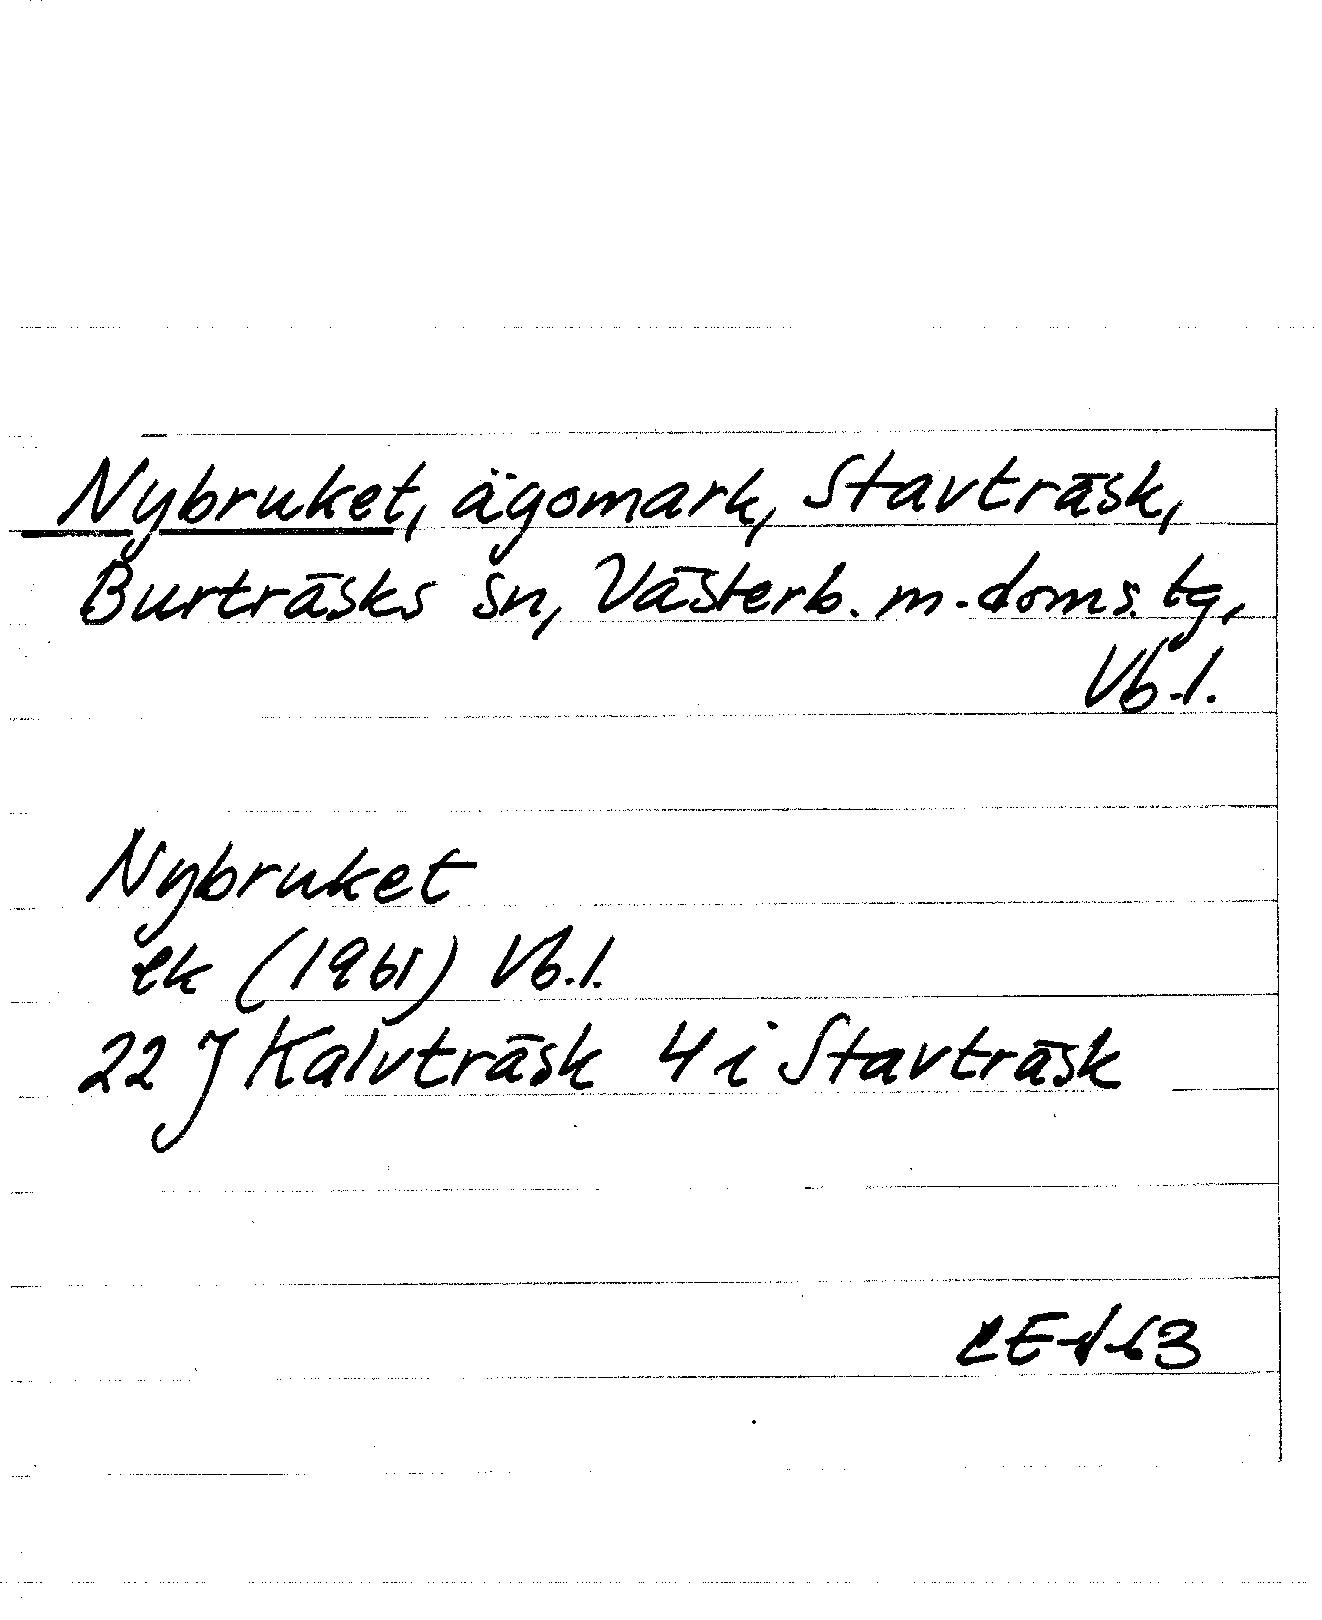 Nybruket, ägomark, Stavträsk,
Burträsks sn, Västerb. m. doms. tg,
Vb. l.
Nybruket
ek (1961) Vb. l.
22 J Kalvträsk 4 i Stavträsk